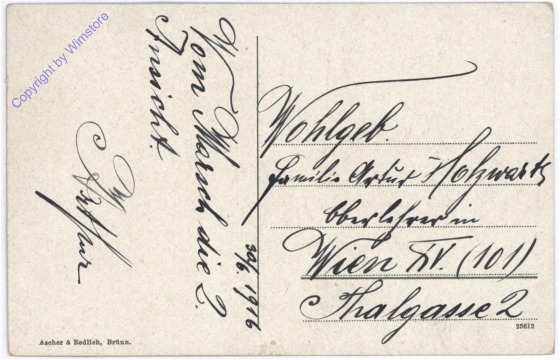 W. W. 30/6 1916
Vom Marsch die 2.
Ansicht.
Arthur
Wohlgeb.
Familie Artur Holzwarth
Oberlehrer in
Wien XV. (101)
Thalgasse 2
Ascher & Redlich, Brünn.
25612
Copyright by Wimstore